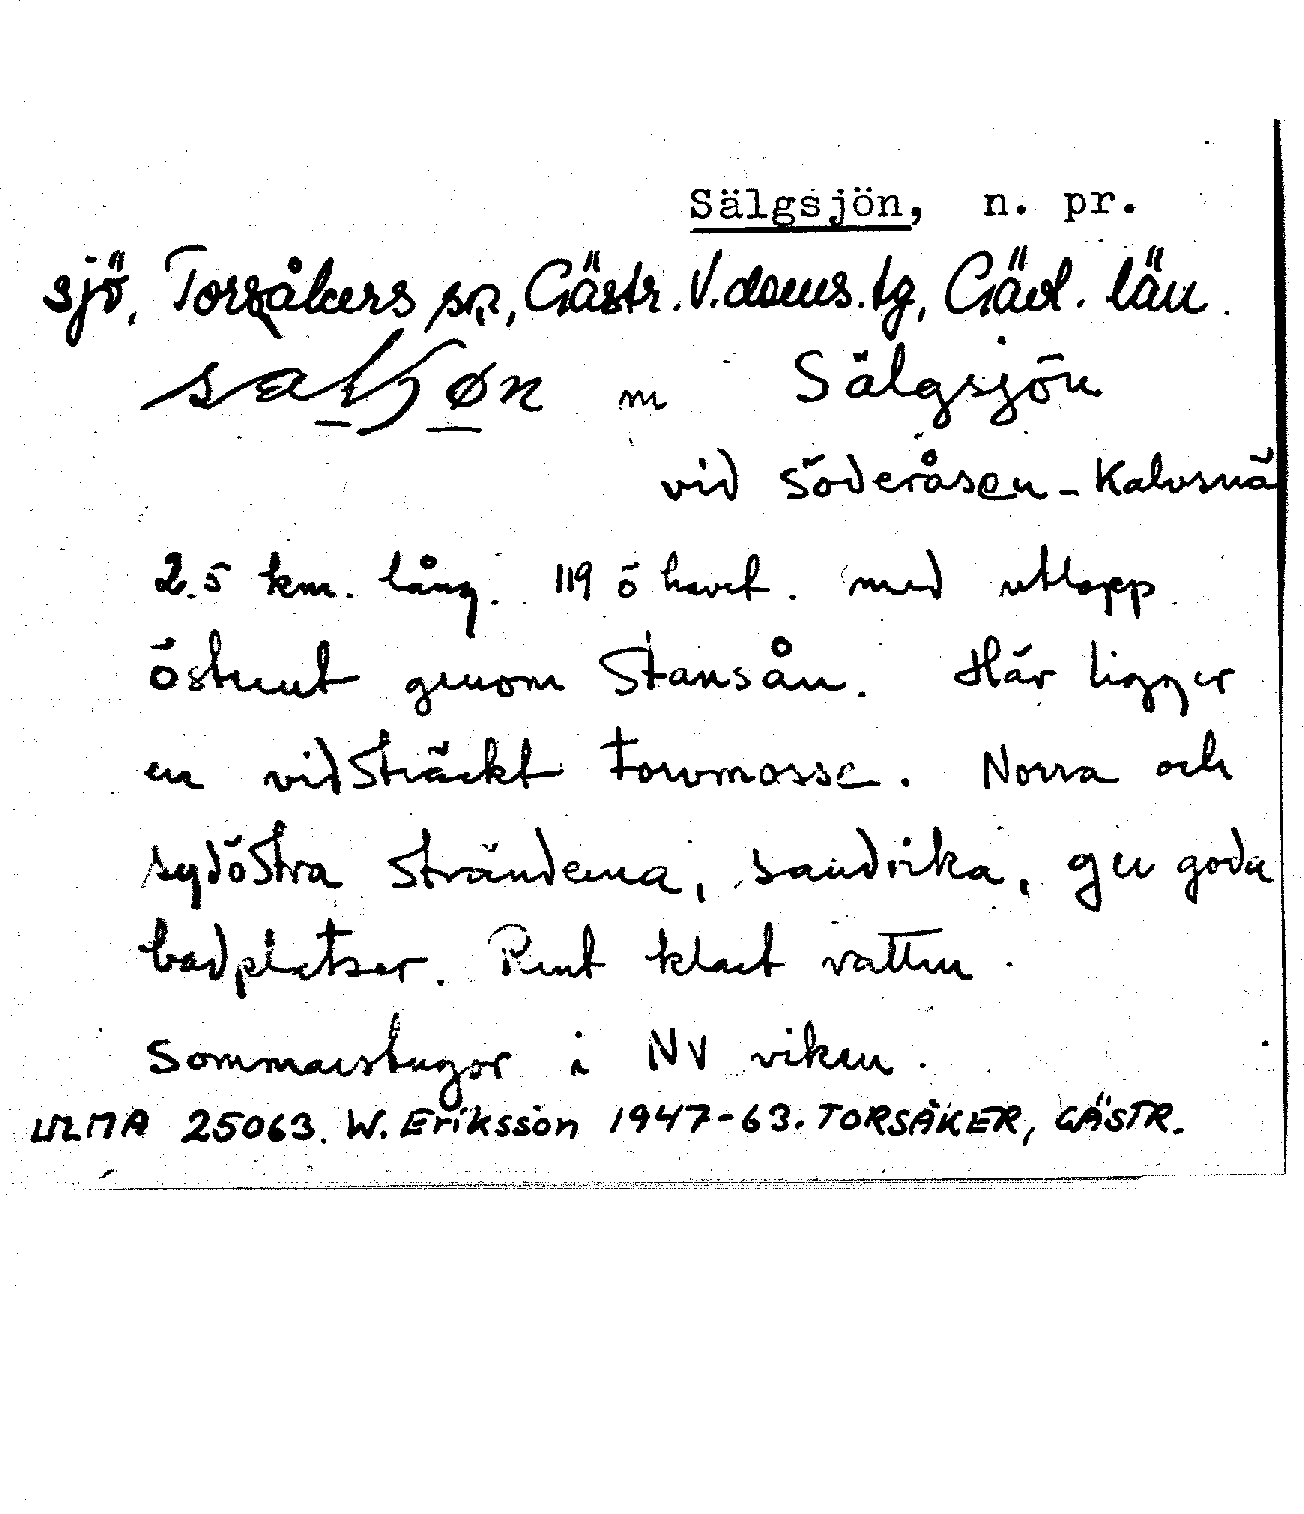 Sälgsjön, n. pr.
sjö, Torsåkers sn, Gästr. V. doms. tg, Gävl. län.
m Sälgsjön
vid Söderåsen - Kalvsnä
2.5 km. lång. 119 ö havet. med utlopp
österut genom Stansån. Här ligger
en vidsträckt torvmosse. Norra och
sydöstra stränderna, sandvika, ger goda
badplatser. Rent klart vatten.
Sommarstugor i NV viken.
ULMA 25063. W. Eriksson 1947-63. TORSÅKER, GÄSTR.